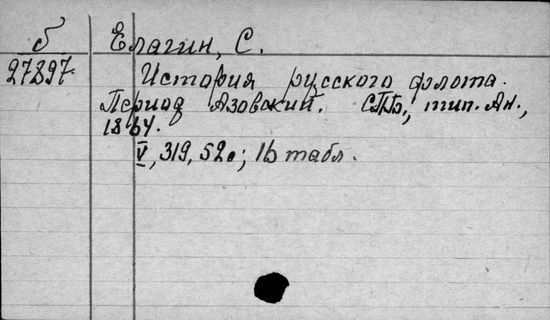 б Елагин, С.
27897 История русского флота.
Период Азовский. СПБ., тип. Ак.,
1864.
V, 319, 52с; 16 табл.